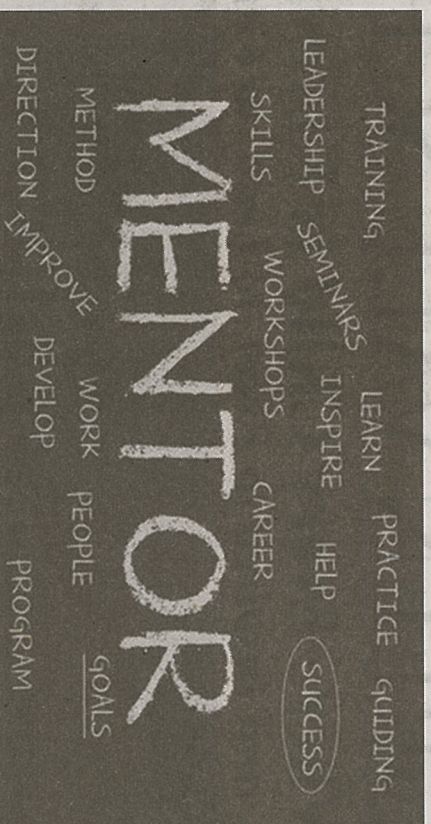 TRAINING LEARN PRACTICE GUIDING
LEADERSHIP SEMINARS INSPIRE HELP SUCCESS
SKILLS WORKSHOPS CAREER
MENTOR
METHOD WORK PEOPLE GOALS
DIRECTION IMPROVE DEVELOP PROGRAM